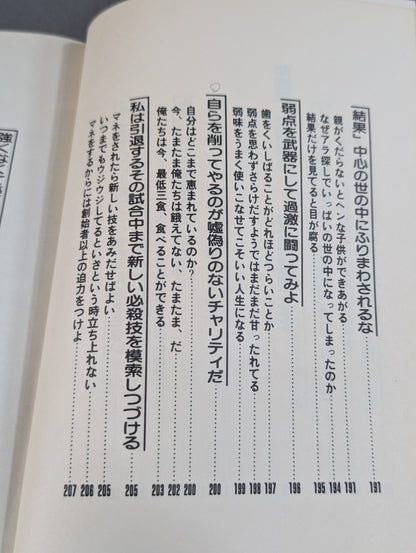 「結果」中心の世の中にふりまわされるな……191
親がくだらないとヘンな子供ができあがる……191
なぜアラ探しでいっぱいの世の中になってしまったのか……194
結果だけを見てると目が腐る……195
弱点を武器にして過激に闘ってみよ……196
歯をくいしばることがどれほどつらいことか……197
弱点を思わずさらけだすようではまだまだ甘ったれてる……198
弱味をうまく使いこなせてこそいい人生になる……199
自らを削ってやるのが嘘偽りのないチャリティだ……200
自分はどこまで恵まれているのか？……200
今、たまたま俺たちは餓えてない、たまたま、だ……202
俺たちは今、最低三食、食べることができる……203
私は引退するその試合中まで新しい必殺技を模索しつづける……205
マネをされたら新しい技をあみだせばよい……205
いつまでもウジウジしてるといざという時立ち上れない……206
マネをするからには創始者以上の迫力をつけよ……207